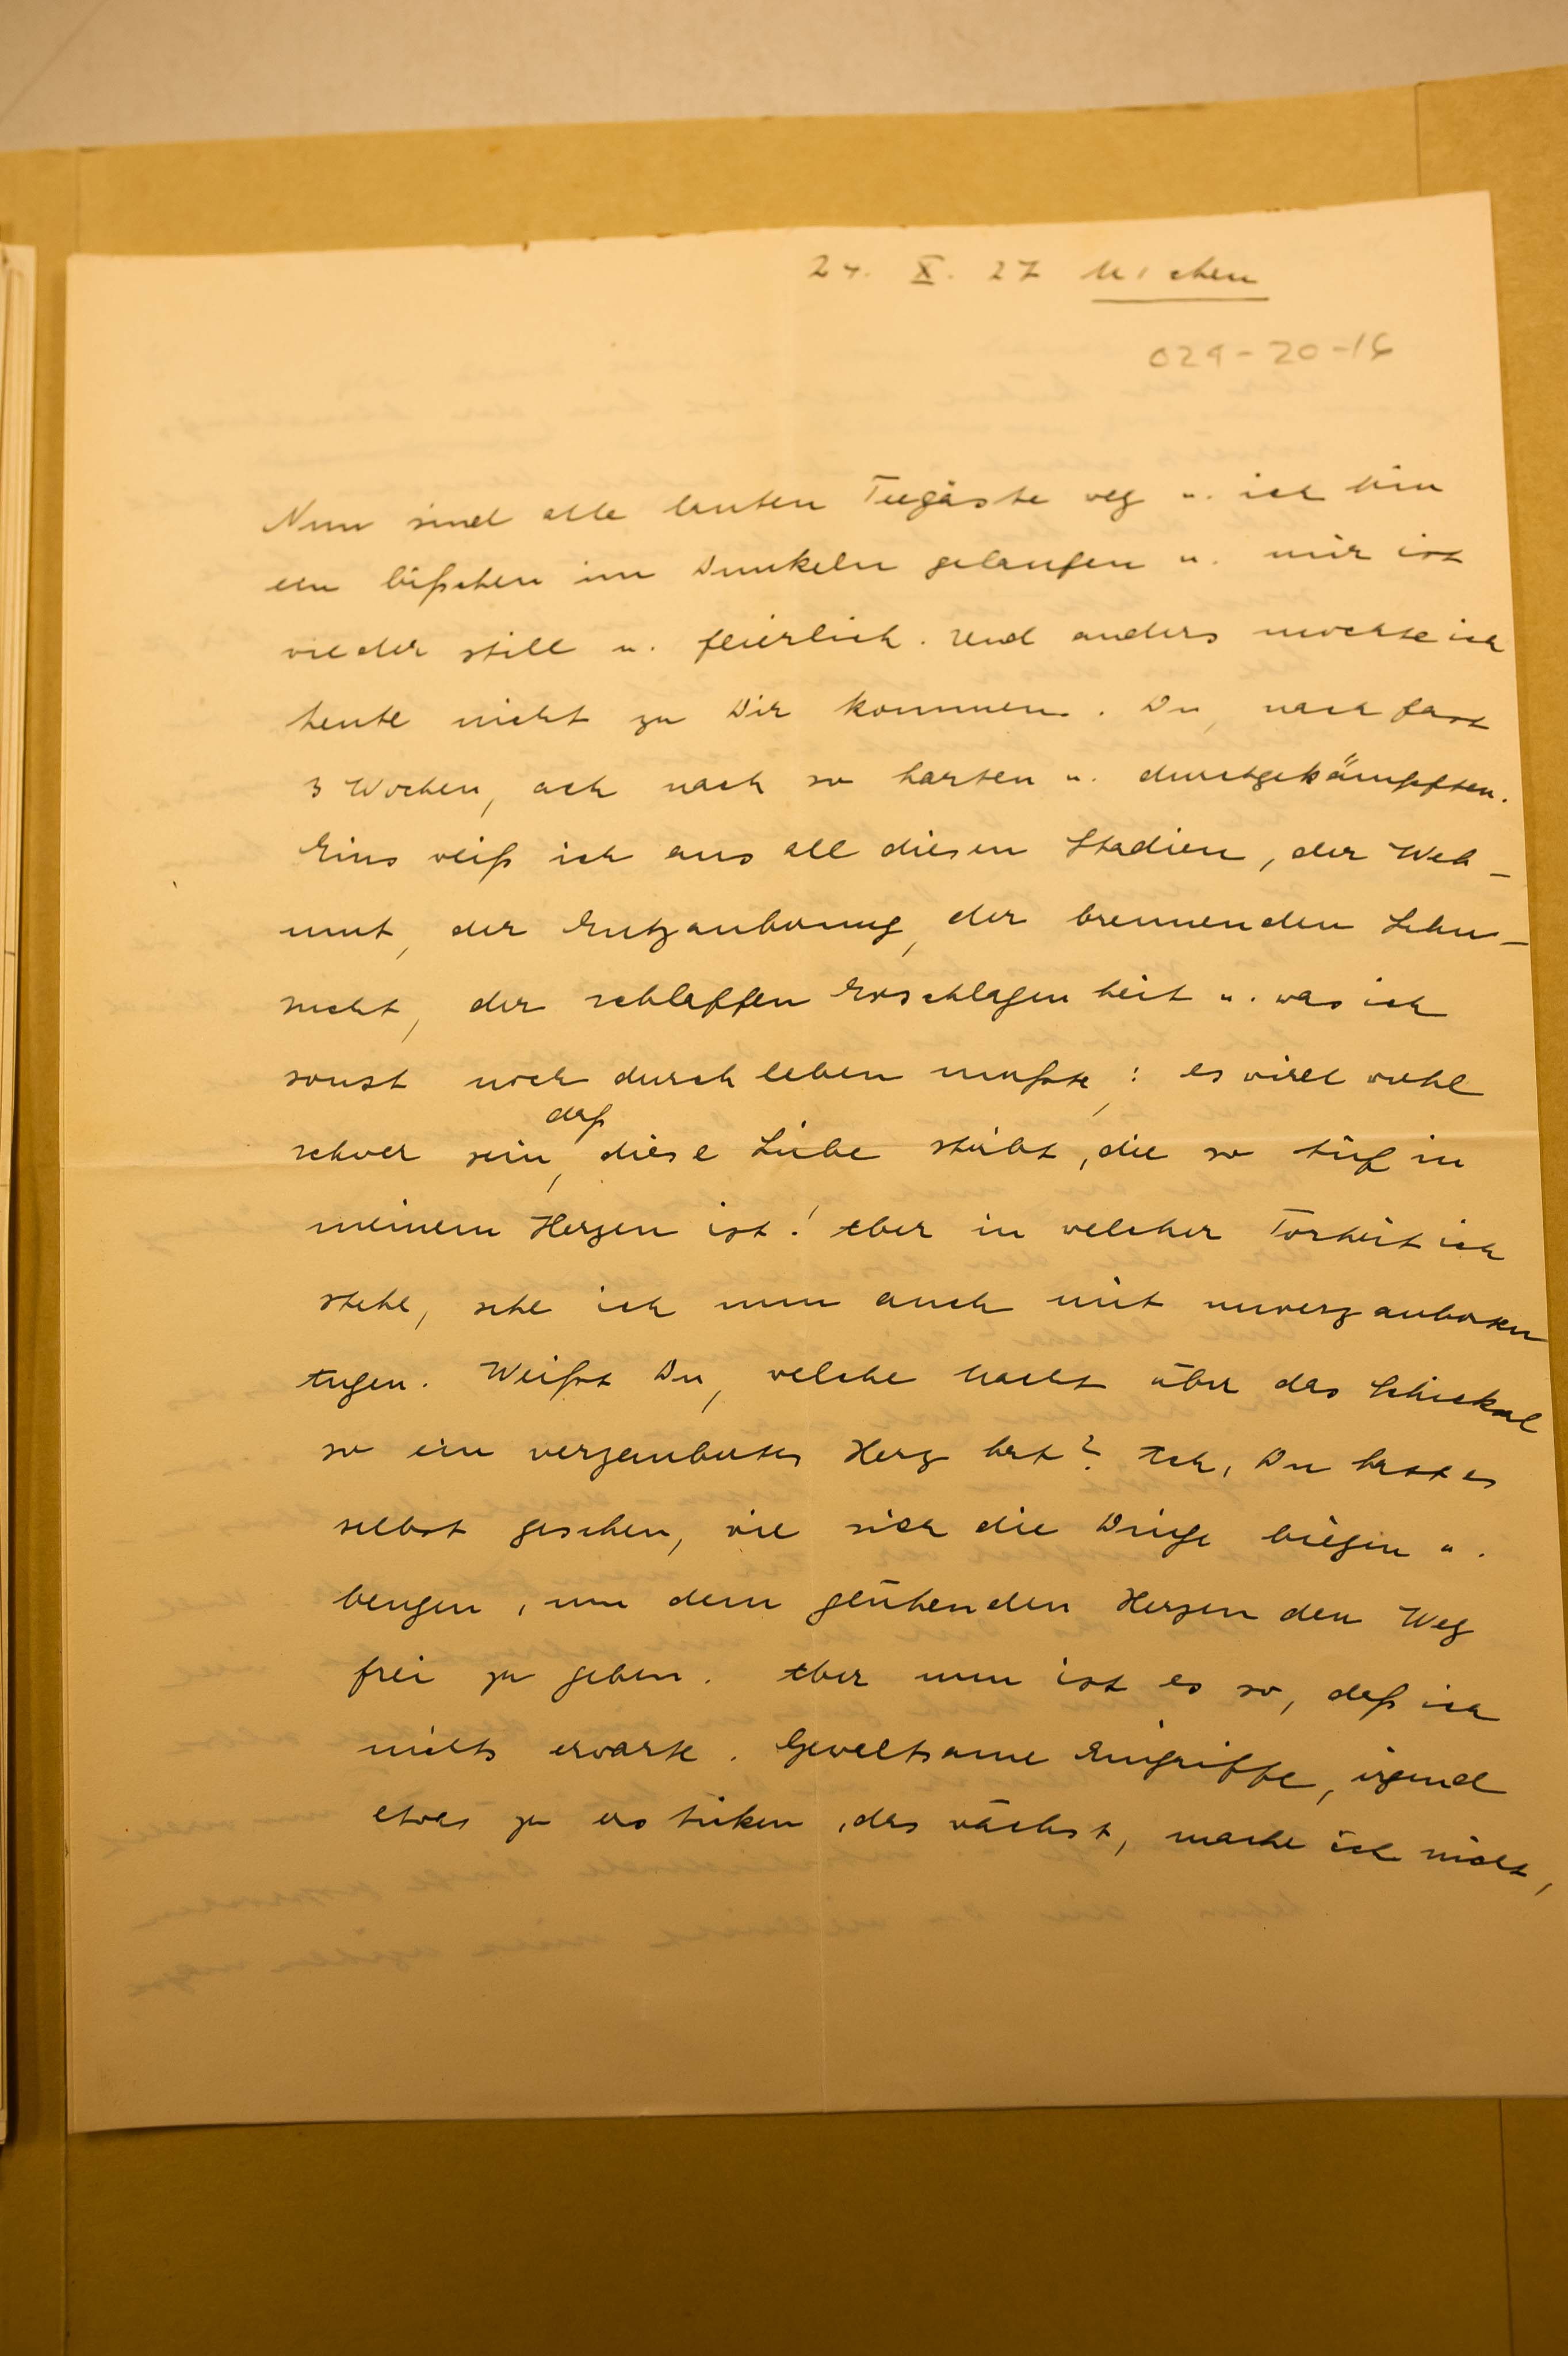 24. X. 27
029-20-16
Nun sind alle lauten Teegäste weg u. ich bin
ein bißchen im Dunkeln gelaufen u. mir ist
wieder still u. feierlich. Und anders mochte ich
heute nicht zu Dir kommen. Du, nach fast
3 Wochen, ach nach so harten u. durchgekämpften.
Eins weiß ich aus all diesen Stadien, der Weh-
mut, der Entzauberung, der brennenden Sehn-
sucht, der schlaffen Erschlagenheit u. was ich
sonst noch durchleben mußte,: es wird wohl
schwer sein, daß diese Liebe stirbt, die so tief in
meinem Herzen ist! Aber in welcher Torheit ich
stehe, sehe ich nun auch mit unverzauberten
Augen. Weißt Du, welche Macht über das Schicksal
so ein verzaubertes Herz hat? Ach, Du hast es
selbst gesehen, wie sich die Dinge biegen u.
beugen, um dem glühenden Herzen den Weg
frei zu geben. Aber nun ist es so, daß ich
nichts erwarte. Gewaltsame Eingriffe, irgend
etwas zu ersticken, das wächst, mache ich nicht,